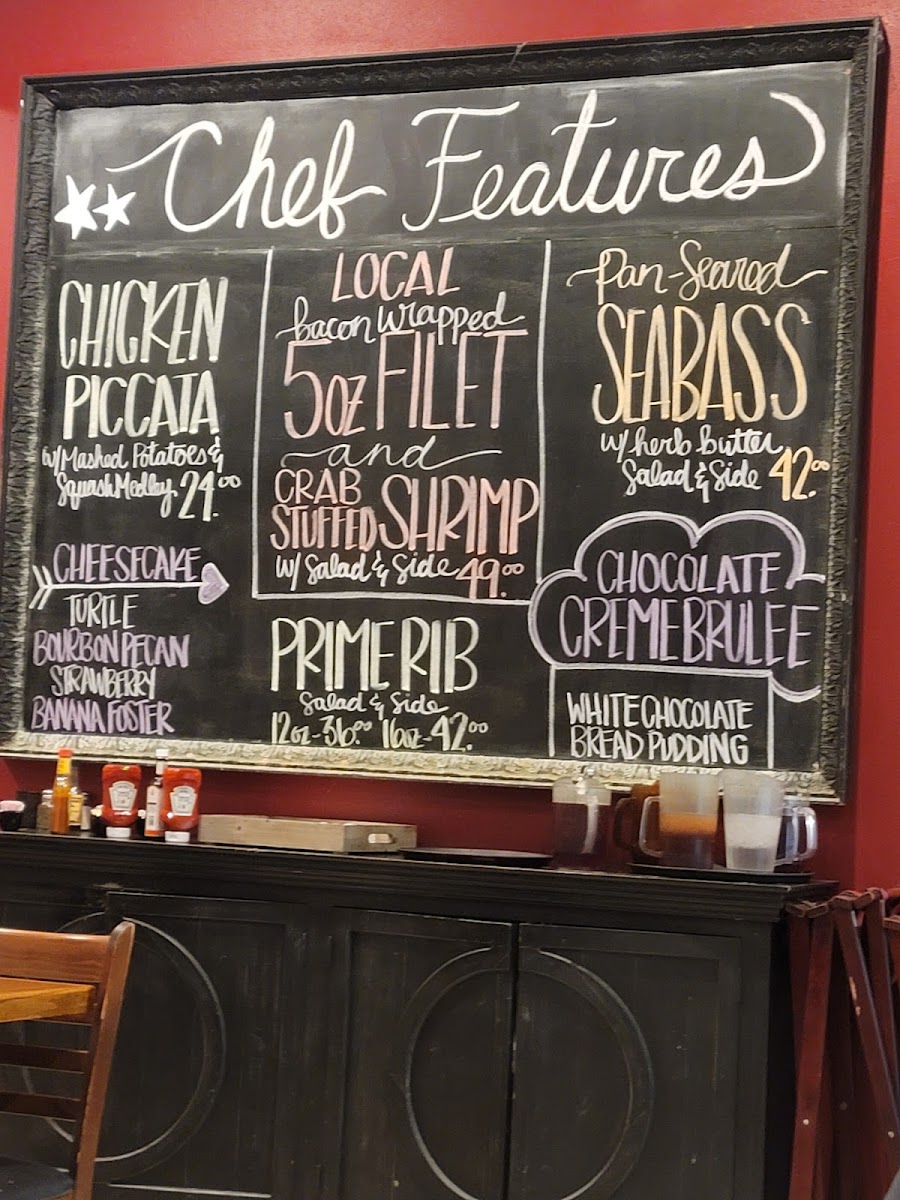 Chef Features
CHICKEN
PICCATA
w/ Mashed Potatoes &
Squash Medley 24.00
CHEESECAKE
TURTLE
BOURBON PECAN
STRAWBERRY
BANANA FOSTER
LOCAL
bacon wrapped
5oz FILET
and
CRAB
STUFFED SHRIMP
w/ Salad & Side 49.00
PRIME RIB
Salad & Side
12oz-36.00 16oz-42.00
Pan-Seared
SEABASS
w/ herb butter
Salad & Side 42.00
CHOCOLATE
CREME BRULEE
WHITE CHOCOLATE
BREAD PUDDING